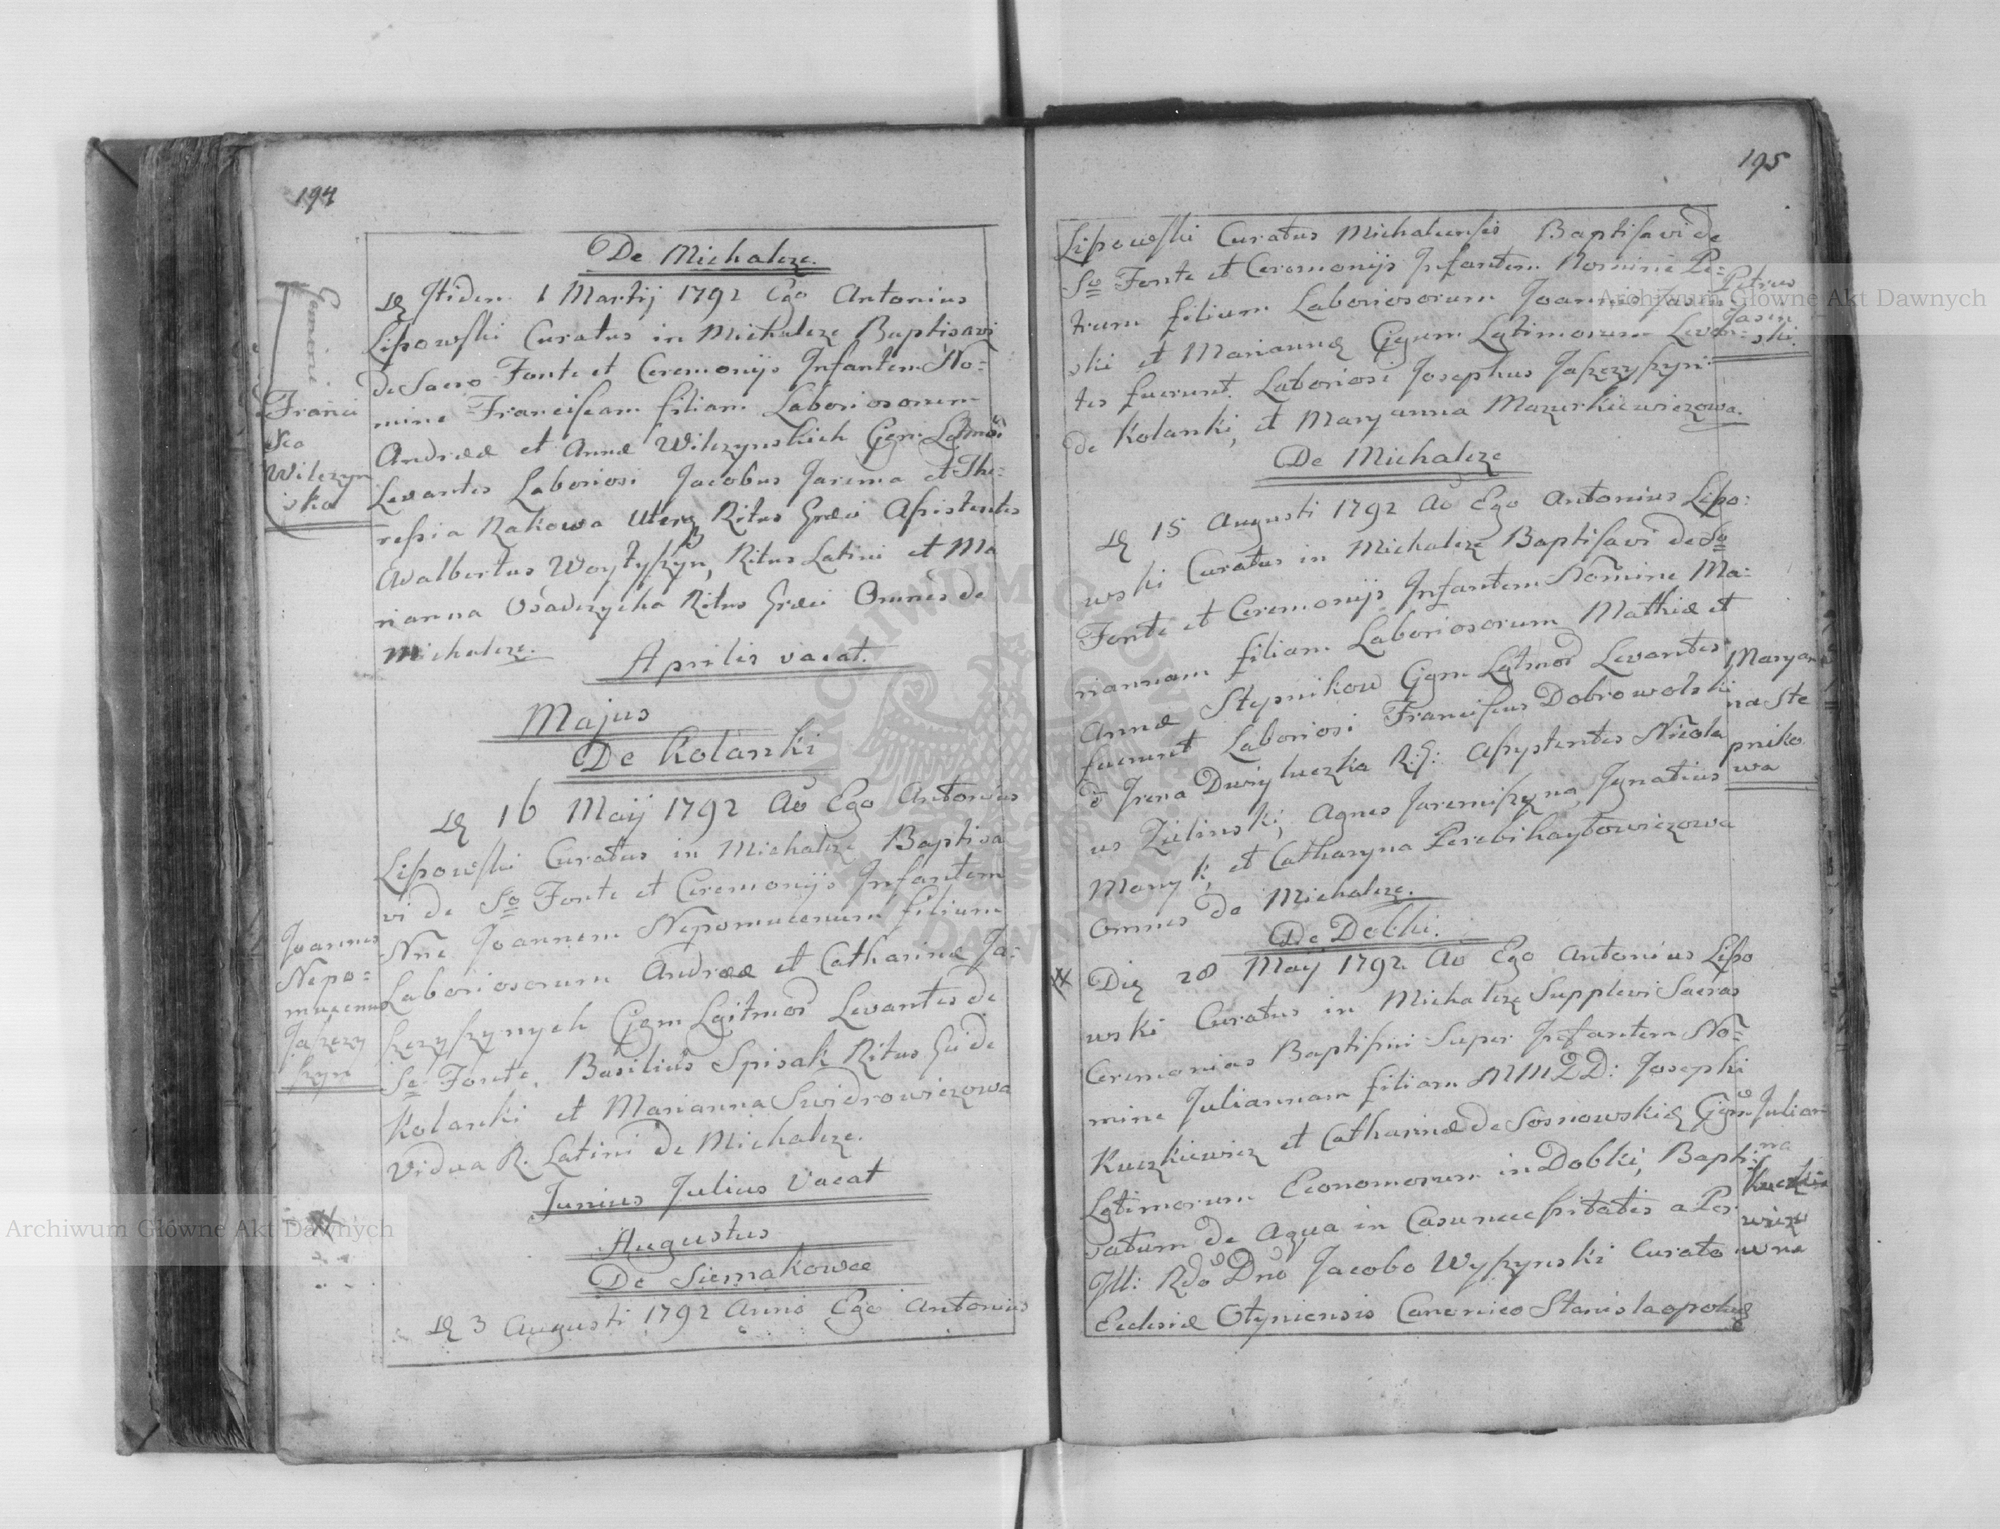 194
De Michalcze.
Itidem 1 Martij 1792 Ego Antonius
Lipowski Curatus in Michalcze Baptisavi
de Sacro Fonte et Ceremonijs Infantem No=
mine Franciscam filiam Laboriosorum
Andreæ et Annæ Wilczynskich Cgm: Lgtmor
Levantes Laboriosi Jacobus Jarema et The=
ressia Rakowa Uterq Ritus Græci Assistentes
Adalbertus Woytyszyn, Ritus Latini et Ma
rianna Osadczycha Ritus Græci Omnes de
Michalcze.
Franci
sca
Wilczyn
ska
Aprilis vacat.
Majus
De Kolanki
16 Maij 1792 Ao Ego Antonius
Lipowski Curatus in Michalcze Baptisa
vi de So Fonte et Ceremonijs Infantem
Nne Joannem Nepomucenum filium
Laboriosorum Andreæ et Catharinæ Ja:
szczyszynych Cgm Lgitmor Levantes de
So Fonte, Basilius Spisak Ritus Gci de
Kolanki et Marianna Swidrowiczowa
Vidua R. Latini de Michalcze.
Joannes
Nepo=
mucenus
Jaszczy
szyn
Junius Julius Vacat
Augustus
De Siemakowce
3 Augusti 1792 Anno Ego Antonius
195
Lipowski Curatus Michalcensis Baptisavi de
So Fonte et Ceremonijs Infantem Nomine Pe=
trum filium Laboriosorum Joannis Jasin
ski et Mariannæ Cgum Lgtimorum Levan=
tes fuerunt Laboriosi Josephus Jaszczyszyn
de Kolanki, et Maryanna Mazurkiewiczowa.
Petrus
Jasin
ski.
De Michalcze
15 Augusti 1792 Ao Ego Antonius Lipo:
wski Curatus in Michalcze Baptisavi de So
Fonte et Ceremonijs Infantem Nomine Ma=
riannam filiam Laboriosorum Mathiæ et
Annæ Stepnikow Cgm Lgtmor Levantes
fuerunt Laboriosi Franciscus Dobrowolski
Irena R.G: Assystentes Nicola
us Zielinski, Agnes Jaremiszyna, Ignatius
Manyk, et Catharyna Perebihaytowiczowa
Omnes de Michalcze.
Maryan
na Ste
pniko
wa
De Dobki.
Die 28 May 1792 Ao Ego Antonius Lipo
wski Curatus in Michalcze Supplevi Sacras
Ceremonias Baptismi Super Infantem No=
mine Juliannam filiam MMDD: Josephi
Kuczkiewicz et Catharinæ de Sosnowskie Cgm
Lgtimorum Economorum in Dobki, Bapti=
satum de Aqua in Casu necessitatis a Per
Ill: Rdo Dno Jacobo Wyszynski Curato
Ecclesiæ Otyniensis Canonico Stanislaopol
Julian
na
Kuczkie
wiczo
wna
Archiwum Główne Akt Dawnych
Archiwum Główne Akt Dawnych